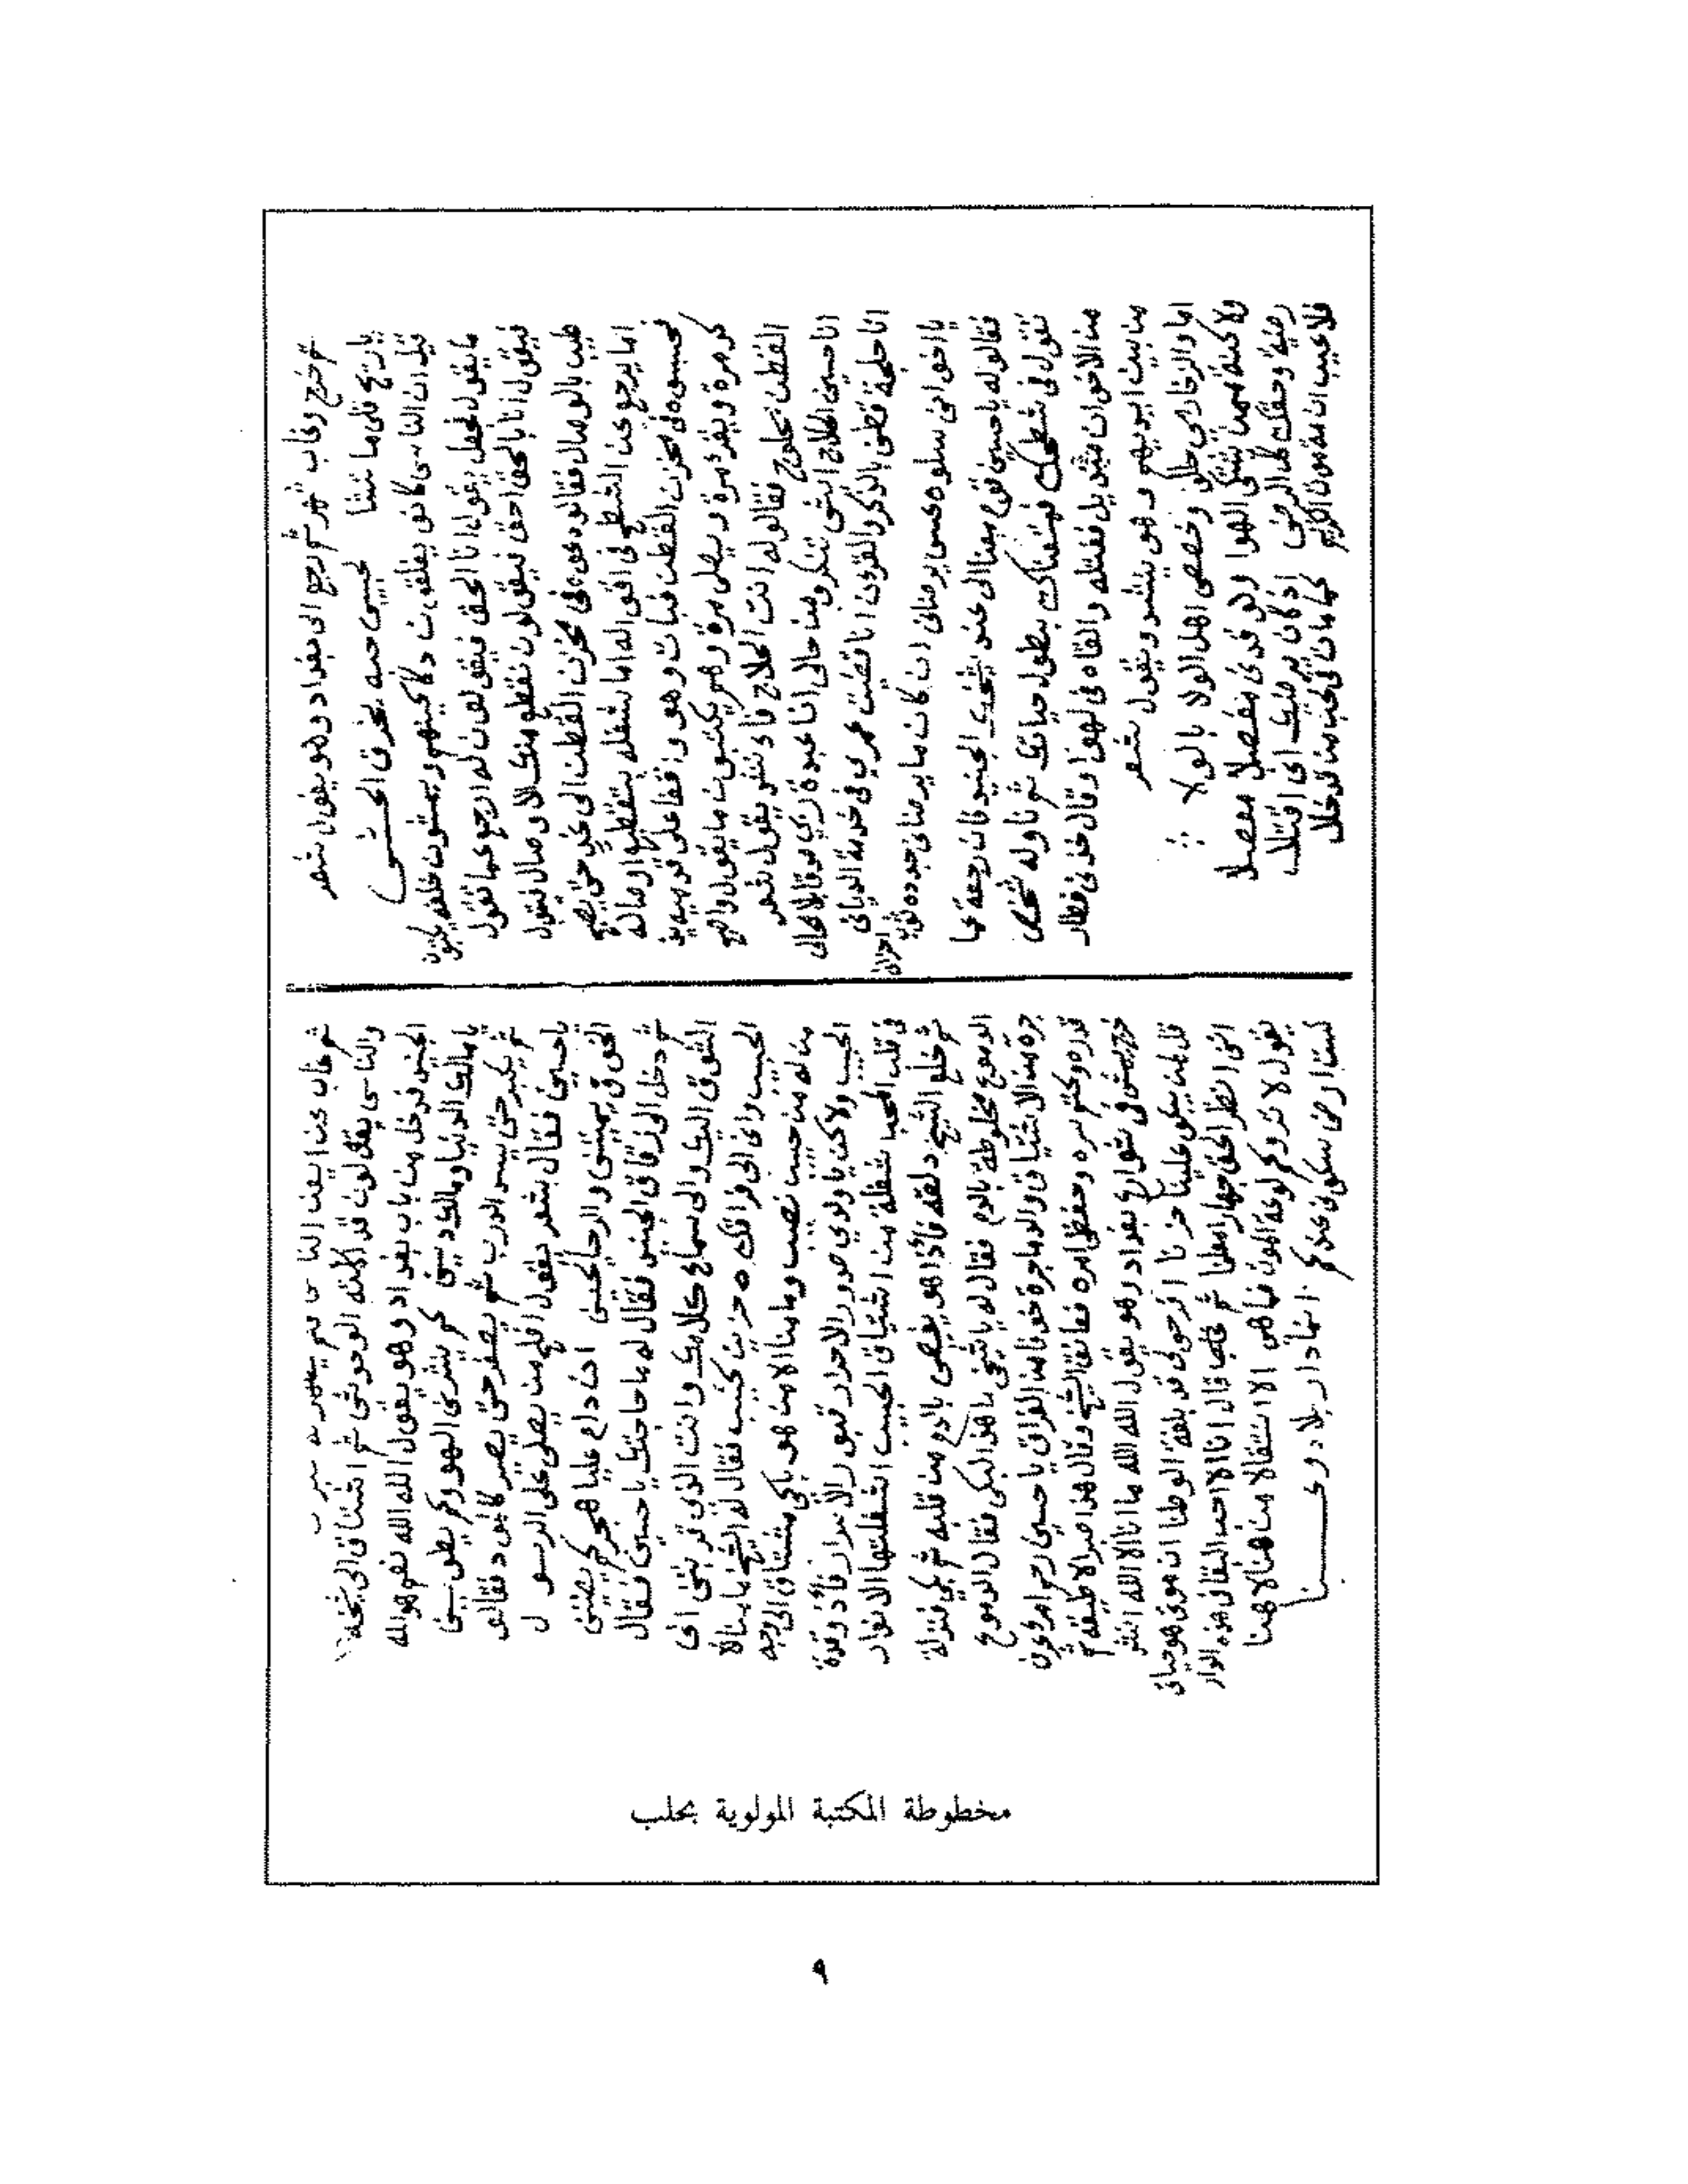 ثم خرج وغاب شهر ثم رجع الى بغداد وهو يقول شعر
ياريح قلي ما تشا لحبيبي حبه يحرق الحشى
قيل ان الناس كانو يغلقون دكاكينهم ويمشون خلفه يكتبون
ما يقول فجعل يقول انا الحق فيقولون له ارجع عما تقول
فيقول انا بالحق احق فيقولون نقطع منك الاوصال فيقول
طيب بالوصال فقالو دعوه في مخزن القطن الى غد حتى يصبح
اما يرجع عن الشطح في اقواله اما نشغله بتقطيع اوصاله
فحبسوه في مخزن القطن فبات وهو واقفا على قدميه يذ
كر مرة ويقر مرة ويصلي مرة وهم يكتبون ما يقول واصبح
القطن محلوج فقالو له انت الحلاج فانشد يقول شعر
انا حسين الحلاج ايش تنكرو من حالي انا عبدة ربي
انا حلجة قطني بالذكر والقران انا قضيت عمري في خدمة الدياني
يا اخواني سلوه عسى يرضاني ان كان ما يرضاني جددة ثوب احزاني
فقالو له ياحسين قوم معنا الى عند الشيخ الجنيد فان رجعة عما
تقول في شطحك فهنيناك بطول حياتك ثم ناوله شخص
من الاخوان فغسله والقاه في الهوا وقال خذني فطار
من ايديهم وهو ينشد ويقول شعر
اما والذي حللو وخصصي اهل الولا بالولا
ولاكنة مهما تشكي الهوا ولو قدني مفصلا مفصلا
رضية وحقك كل الرضى اذ كان يرضيك اني اقتلا
فلا عجب انه موت الكريم كما مات في الحب من قد خلا
ثم غاب عن
والناس يقولون قد اكلته الوحوش ثم اشتاق الى شيخه
الجنيد فدخل من باب بغداد وهو يقول الله الله نعم هو الله
يا مالك الدنيا ومالك ديني كم ينشرني الهوى وكم يطويني
ثم يكبر حتى يسد الدرب ثم يصغر حتى يصير فقالو
ياحسين فقال بشعر يقول افلح من يصلي على الرسول
الخوف يميتني والرجا يحييني ان دام عليا هجركم يضنيني
ثم دخل الى زقاق الجنيد فقال له ما حاجتك ياحسين فقال
الشوق اليك والى سماع كلامك وانت الذي قربتني الى
الحبيب واني الى فراقك حزين كئيب فقال له الشيخ ما منا الا
من له من حبيب نصيب وما منا الا من هو باكي مشتاق الى وجه
الحبيب ولاكن يا ولدي صدور الاحرار قبور الاسرار
في قلب المحبا شعلة من اشتياق الحبيب اشعلتها الانوار
ثم خلع الشيخ دلقه فاذا هو يفيض بالدم من قلبه ثم بكي فنزلة
الدموع مخلوطة بالدم فقال له ياشيخي ما هذا البكى فقال الدموع
جرة من الاشتياق والدما جرة خوفا من الفراق ياحسين
قدره وكتم سره وحفظ امره فعانق الشيخ وقال هذا
خرج يمشي في شوارع بغداد وهو يقول الله الله ما انا الا الله انشر
قل لمن يبكو علينا حزنا افرحو لي قد بلغة الوطنا ان موتي هو حياتي
انني انظر الحق جهارا معلنا ثم غاب قال انا لا احب البقا في هذه الدار
يقول لا تروعكم لوعة الموت فما هي الا انتقالا من هنا لا هنا
لست ارضى سكونا عندكم انها دار بلا
مخطوطة المكتبة المولوية بحلب
٩